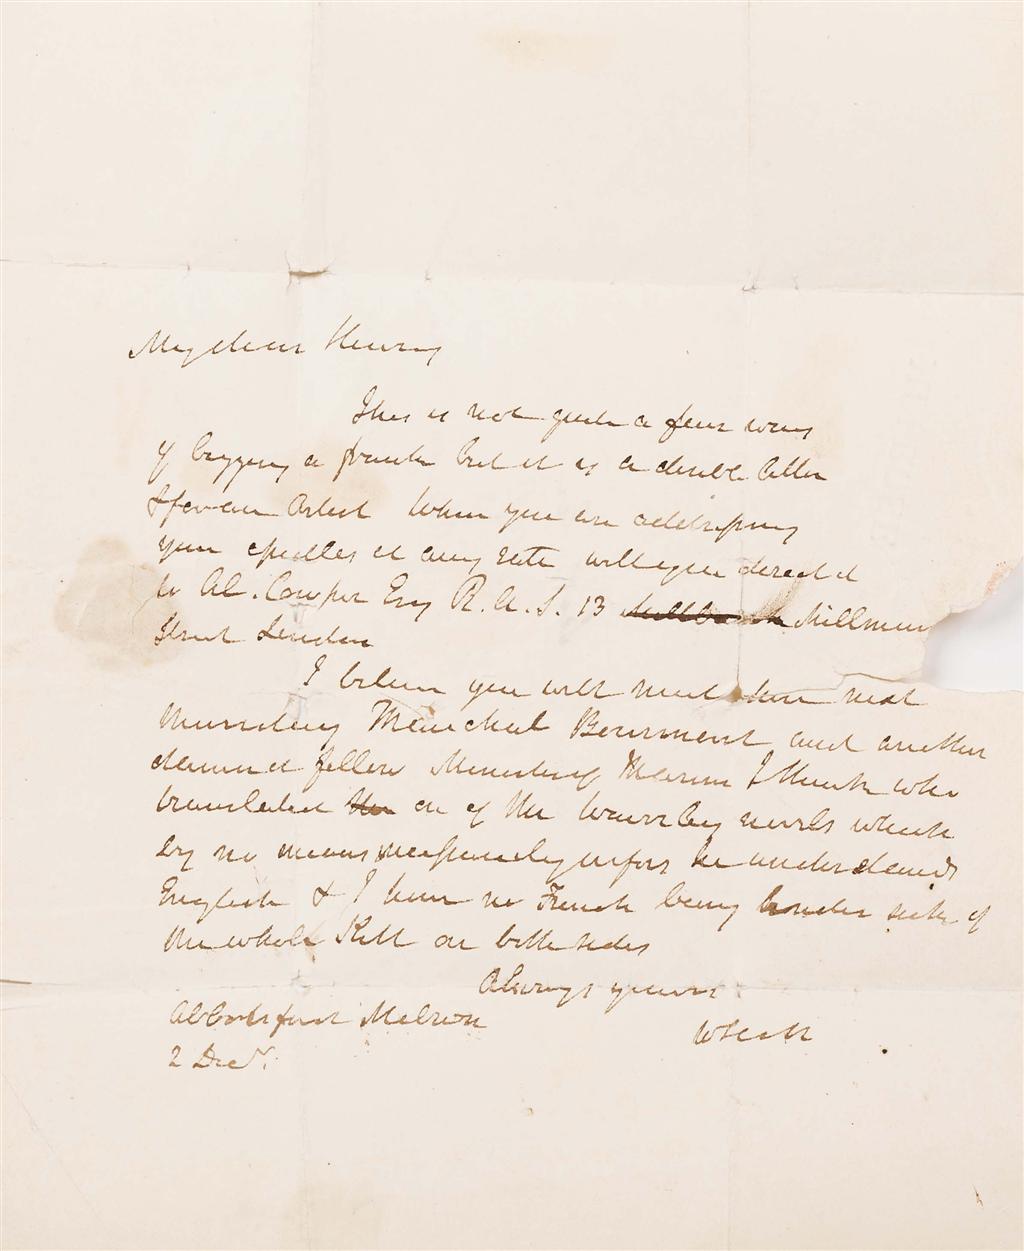 My dear Henry
This is not quite a fair way
of begging a frank but it is a double letter
& for an Artist When you are addressing
your epistles at any rate will you direct it
to Al. Cowper Esq R.A. 13 Millman
Street London
I believe you will meet here next
Thursday Marechal Bourmont and another
damned fellow Monsieur I think who
translated on of the Waverley novels which
by no means necessarily infers he understands
English & I have no French being sick of
the whole Kitt on both sides
Always yours
WScott
Abbotsford Melrose
2 Decr.